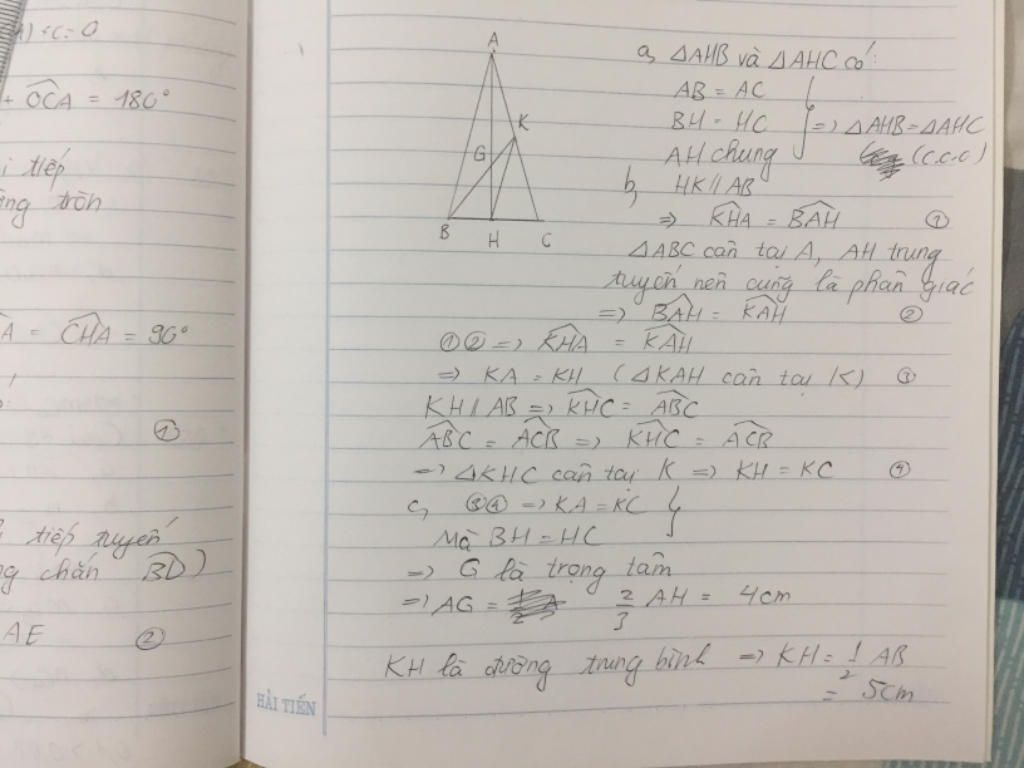 ) + c = 0
+ OCA = 180°
i tiếp
ng tròn
A = CHA = 90°
①
tiếp tuyến
ng chắn BD)
AE ②
A
K
G
B H C
a, ΔAHB và ΔAHC có:
AB = AC
BH = HC => ΔAHB = ΔAHC
AH chung (c.c.c)
b, HK // AB
=> KHA = BAH ①
ΔABC cân tại A, AH trung
tuyến nên cũng là phân giác
=> BAH = KAH ②
①② => KHA = KAH
=> KA = KH (ΔKAH cân tại K) ③
KH // AB => KHC = ABC
ABC = ACB => KHC = ACB
=> ΔKHC cân tại K => KH = KC ④
c, ③④ => KA = KC
Mà BH = HC
=> G là trọng tâm
=> AG = 2/3 AH = 4cm
KH là đường trung bình => KH = 1/2 AB
= 5cm
HẢI TIẾN